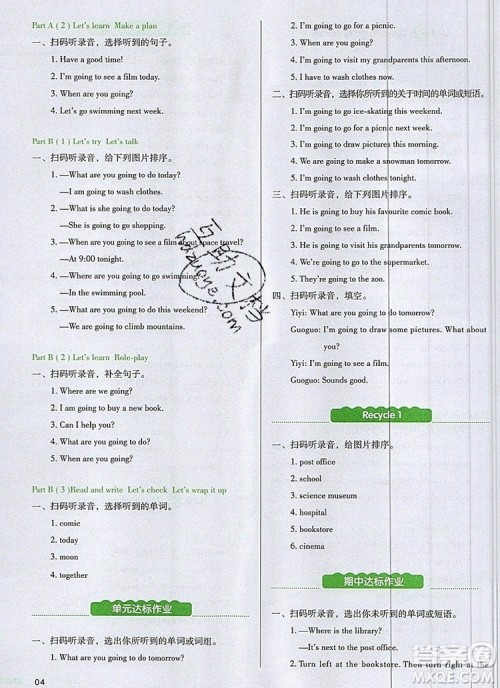 Part A ( 2 ) Let's learn Make a plan
一、扫码听录音，选择听到的句子。
1. Have a good time!
2. I'm going to see a film today.
3. When are you going?
4. Let's go swimming next week.
Part B ( 1 ) Let's try Let's talk
一、扫码听录音，给下列图片排序。
1. —What are you going to do today?
—I am going to wash clothes.
2. —What is she going to do today?
—She is going to go shopping.
3. —When are you going to see a film about space travel?
—At 9:00 tonight.
4. —Where are you going to go swimming?
—In the swimming pool.
5. —What are you going to do this weekend?
—We are going to climb mountains.
Part B ( 2 ) Let's learn Role-play
一、扫码听录音，补全句子。
1. Where are we going?
2. I am going to buy a new book.
3. Can I help you?
4. What are you going to do?
Part B ( 3 )Read and write Let's check Let's wrap it up
一、扫码听录音，选择听到的单词。
1. comic
2. today
3. moon
4. together
单元达标作业
一、扫码听录音，选出你所听到的单词或词组。
1. What are you going to do tomorrow?
04
2. I'm going to go for a picnic.
3. When are you going?
4. I'm going to visit my grandparents this afternoon.
5. I have to wash clothes now.
二、扫码听录音，选择你所听到的关于时间的单词或短语。
1. I'm going to go ice-skating this weekend.
2. I'm going to go for a picnic next week.
3. I'm going to draw pictures this morning.
4. I'm going to make a snowman tomorrow.
5. I'm going to wash clothes tonight.
三、扫码听录音，给下列图片排序。
1. He is going to buy his favourite comic book.
2. I'm going to see a film.
3. I'm going to visit my grandparents tomorrow.
4. We're going to go to the supermarket.
5. They're going to the zoo.
四、扫码听录音，填空。
Yiyi: What are you going to do tomorrow?
Guoguo: I'm going to draw some pictures. What about
you?
Yiyi: I'm going to see a film.
Guoguo: Sounds good.
Recycle 1
一、扫码听录音，给图片排序。
1. post office
2. school
3. science museum
4. hospital
5. bookstore
6. cinema
期中达标作业
一、扫码听录音，选出你未听到的单词或短语。
1. —Where is the library?
—It's next to the post office.
2. Turn left at the bookstore. Then turn right at the
互助文档
huzuoye.com
答案圈
MXQE.COM